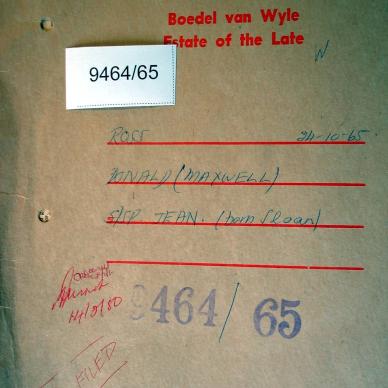 Boedel van Wyle
Estate of the Late
9464/65
ROSS 24-10-65
RONALD (MAXWELL)
S/SP. JEAN. (born Sloan)
9464/65
14/2/80
FILED